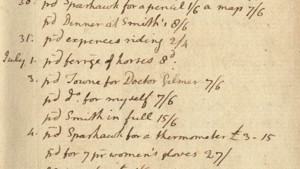 30. pd Sparhawk for a pencil 1/6 a map 7/6
pd Dinner at Smith's 8/6
31. pd expences riding 2/4
July 1. pd ferrige of horses 8d.
3. pd Towne for Doctor Gilmer 7/6
pd do. for myself 7/6
pd Smith in full 15/6
4. pd Sparhawk for a thermometer £3-15
pd for 7 pr women's gloves 27/